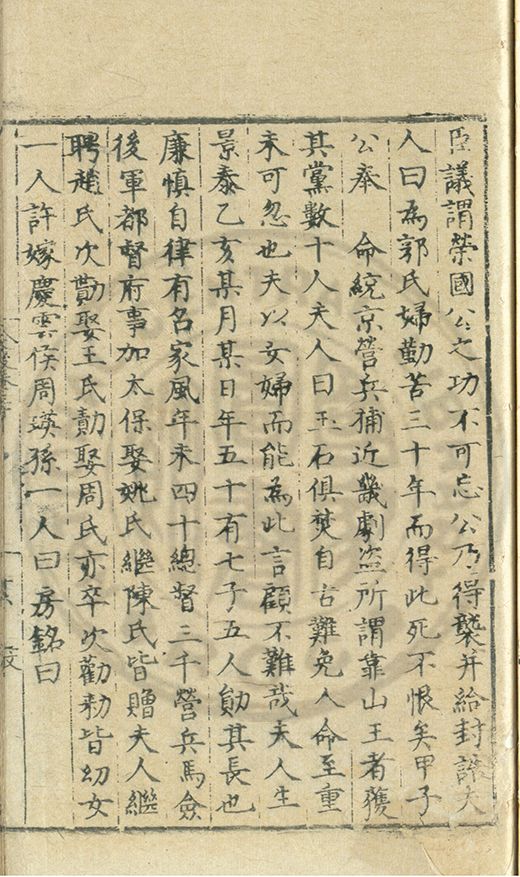 臣議謂榮國公之功不可忘公乃得襲并給封誥夫
人曰為郭氏婦勤苦三十年而得此死不恨矣甲子
公奉　命統京營兵捕近畿劇盜所謂靠山王者獲
其黨數十人夫人曰玉石俱焚自古難免人命至重
未可忽也夫以女婦而能為此言顧不難哉夫人生
景泰乙亥某月某日年五十有七子五人勛其長也
廉慎自律有名家風年未四十總督三千營兵馬僉
後軍都督府事加太保娶姚氏繼陳氏皆贈夫人繼
聘趙氏次勩娶王氏勣娶周氏亦卒次勸勑皆幼女
一人許嫁慶雲侯周瑛孫一人曰房銘曰